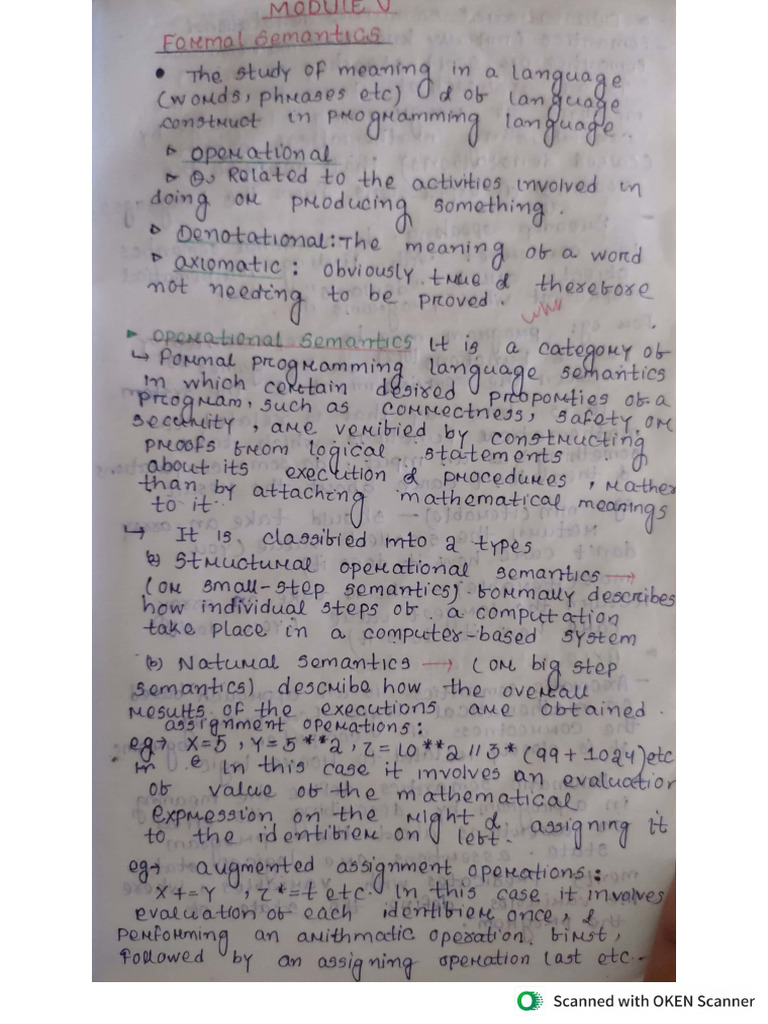 MODULE V
Formal Semantics
• The study of meaning in a language
(words, phrases etc) & of language
construct in programming language.
▹ operational
▹ Related to the activities involved in
doing or producing something.
▹ Denotational: The meaning of a word
▹ axiomatic: obviously true & therefore
not needing to be proved.
▸ operational semantics It is a category of
↳ Formal programming language semantics
in which certain desired properties of a
program, such as correctness, safety or
security, are verified by constructing
proofs from logical statements
about its execution & procedures, rather
than by attaching mathematical meanings
to it.
↳ It is classified into 2 types
(a) Structural operational semantics →
(or small-step semantics) formally describes
how individual steps of a computation
take place in a computer-based system
(b) Natural semantics → (or big step
semantics) describe how the overall
results of the executions are obtained.
assignment operations:
eg→ X=5, Y=5**2, Z=10**2//3*(99+1024)etc
In this case it involves an evaluation
of value of the mathematical
expression on the right & assigning it
to the identifier on left.
eg→ augmented assignment operations:
X+=Y, Z*=t etc. In this case it involves
evaluation of each identifier once, &
performing an arithmatic operation first,
followed by an assigning operation last etc.
Scanned with OKEN Scanner